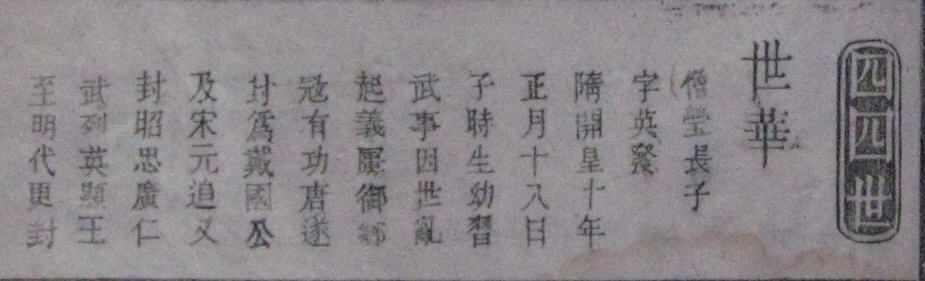 四四世
世華
僧瑩長子
字英發
隋開皇十年
正月十八日
子時生幼習
武事因世亂
起義御鄉
寇有功唐遂
封爲戴國公
及宋元追又
封昭忠廣仁
武列英顯王
至明代更封